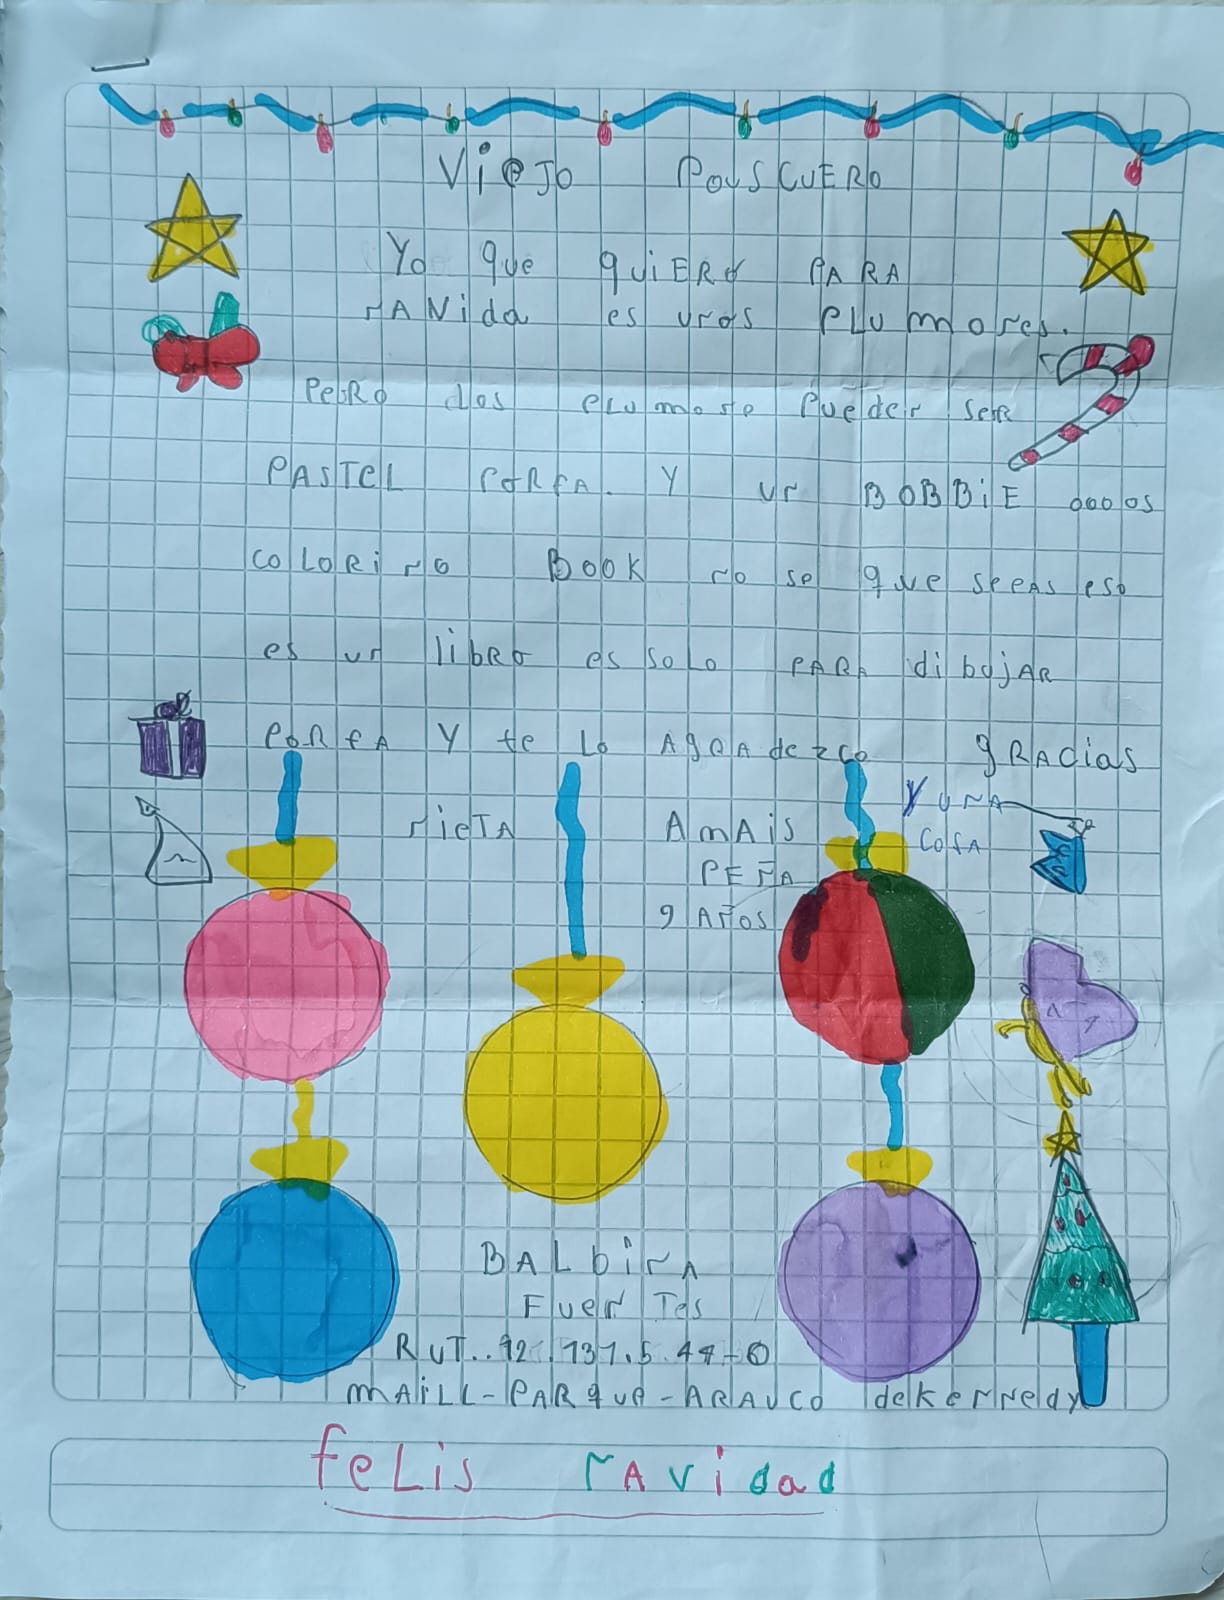 Viejo PousCUERO
Yo que quiero PARA
nAVida es uros PLumores.
PeRO los PLumore Pueden ser
PASTEL PORFA. Y un BOBBiE ooo os
COLORiNG BOOK no se que seeas eso
es un libRO es solo PARA dibujAR
PORFA Y te lo AgRAdezco gRAcias
Y UNA
nieTA AmAis COSA
PEÑA
9 AÑOS
BALbinA
FuenTes
RUT..12.131.5
mAiLL-PARque-ARAUCO de kennedy
feLis navidad